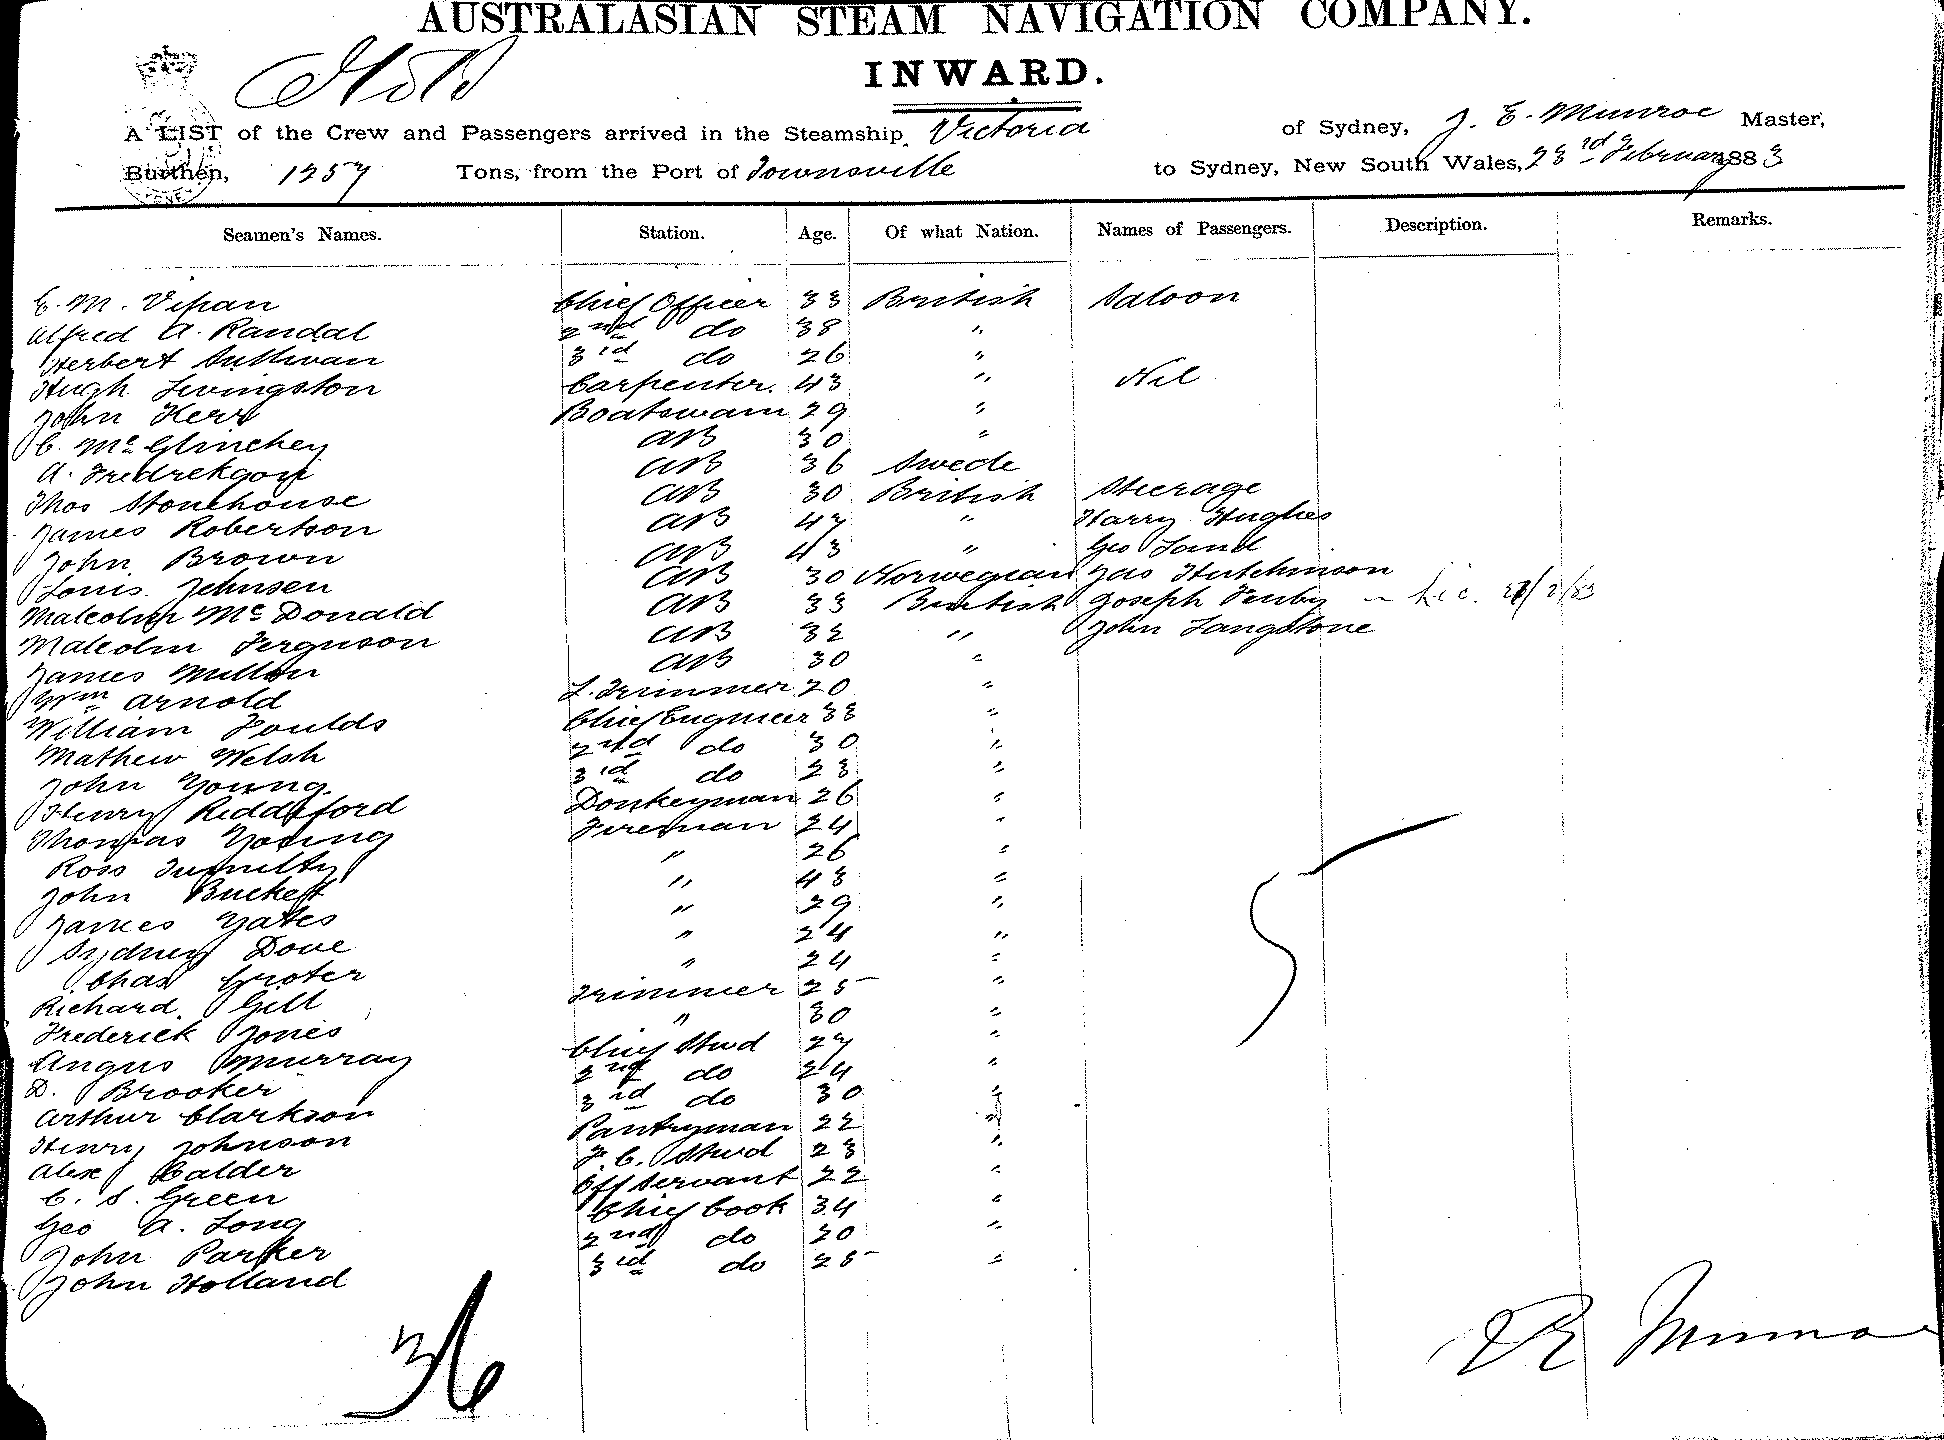 AUSTRALASIAN STEAM NAVIGATION COMPANY.
INWARD.
A LIST of the Crew and Passengers arrived in the Steamship, Victoria of Sydney, J. E. Munroe Master,
Burthen, 1257 Tons, from the Port of Townsville to Sydney, New South Wales, 23rd February 1883
Seamen's Names. Station. Age. Of what Nation. Names of Passengers. Description. Remarks.
C. M. Vipan Chief Officer 33 British Saloon
Alfred A. Randal 2nd do 38 "
Herbert Sullivan 3rd do 26 "
Hugh Livingston Carpenter. 43 " Nil
John Kerr Boatswain 29 "
C. McGlinchey AB 30 "
A. AB 36 Swede
Thos Stonehouse AB 30 British Steerage
James Robertson AB 47 " Harry Hughes
John Brown AB 43 " Geo Land
Louis Johnsen AB 30 Norwegian Jas Hutchinson
Malcolm McDonald AB 33 British Joseph
Malcolm Ferguson AB 32 " John Langstone
James Milton AB 30 "
Wm Arnold L. Trimmer 20 "
William Foulds Chief Engineer 33 "
Mathew Welsh 2nd do 30 "
John Young. 3rd do 23 "
Henry Riddiford Donkeyman 26 "
Thomas Young Fireman 24 "
Ross Tumulty " 26 "
John Buckett " 43 "
James Yates " 29 "
Sydney Dove " 24 "
Chas Groter " 24 "
Richard Gill Trimmer 25 "
Frederick Jones " 30 "
Angus Murray Chief Stwd 27 "
D. Brooker 2nd do 24 "
Arthur Clarkson 3rd do 30 "
Henry Johnson Pantryman 22 "
Alex Calder F. C. Stwd 23 "
C. S. Green Off Servant 22 "
Geo A. Long Chief Cook 34 "
John Parker 2nd do 20 "
John Holland 3rd do 25 "
5
36
J E Munroe